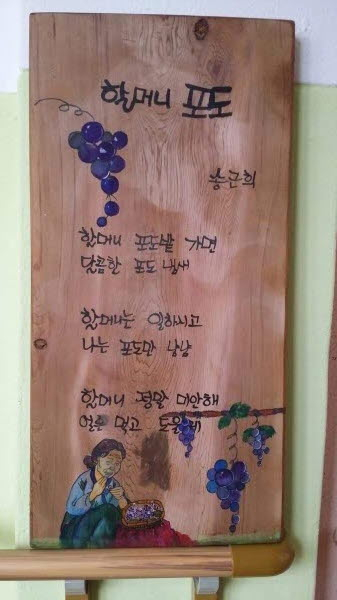 할머니 포도
송근희
할머니 포도밭 가면
달콤한 포도 냄새
할머니는 일하시고
나는 포도만 냠냠
할머니 정말 미안해
얼른 먹고 도울게